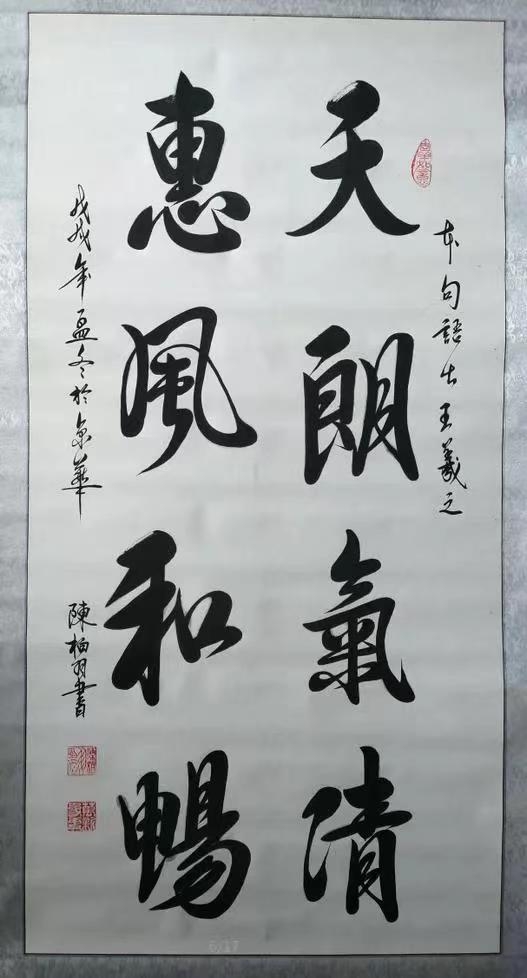 本句語出王羲之
天朗氣清
惠風和暢
戊戌年孟冬於京華
陳柏羽書
6/17